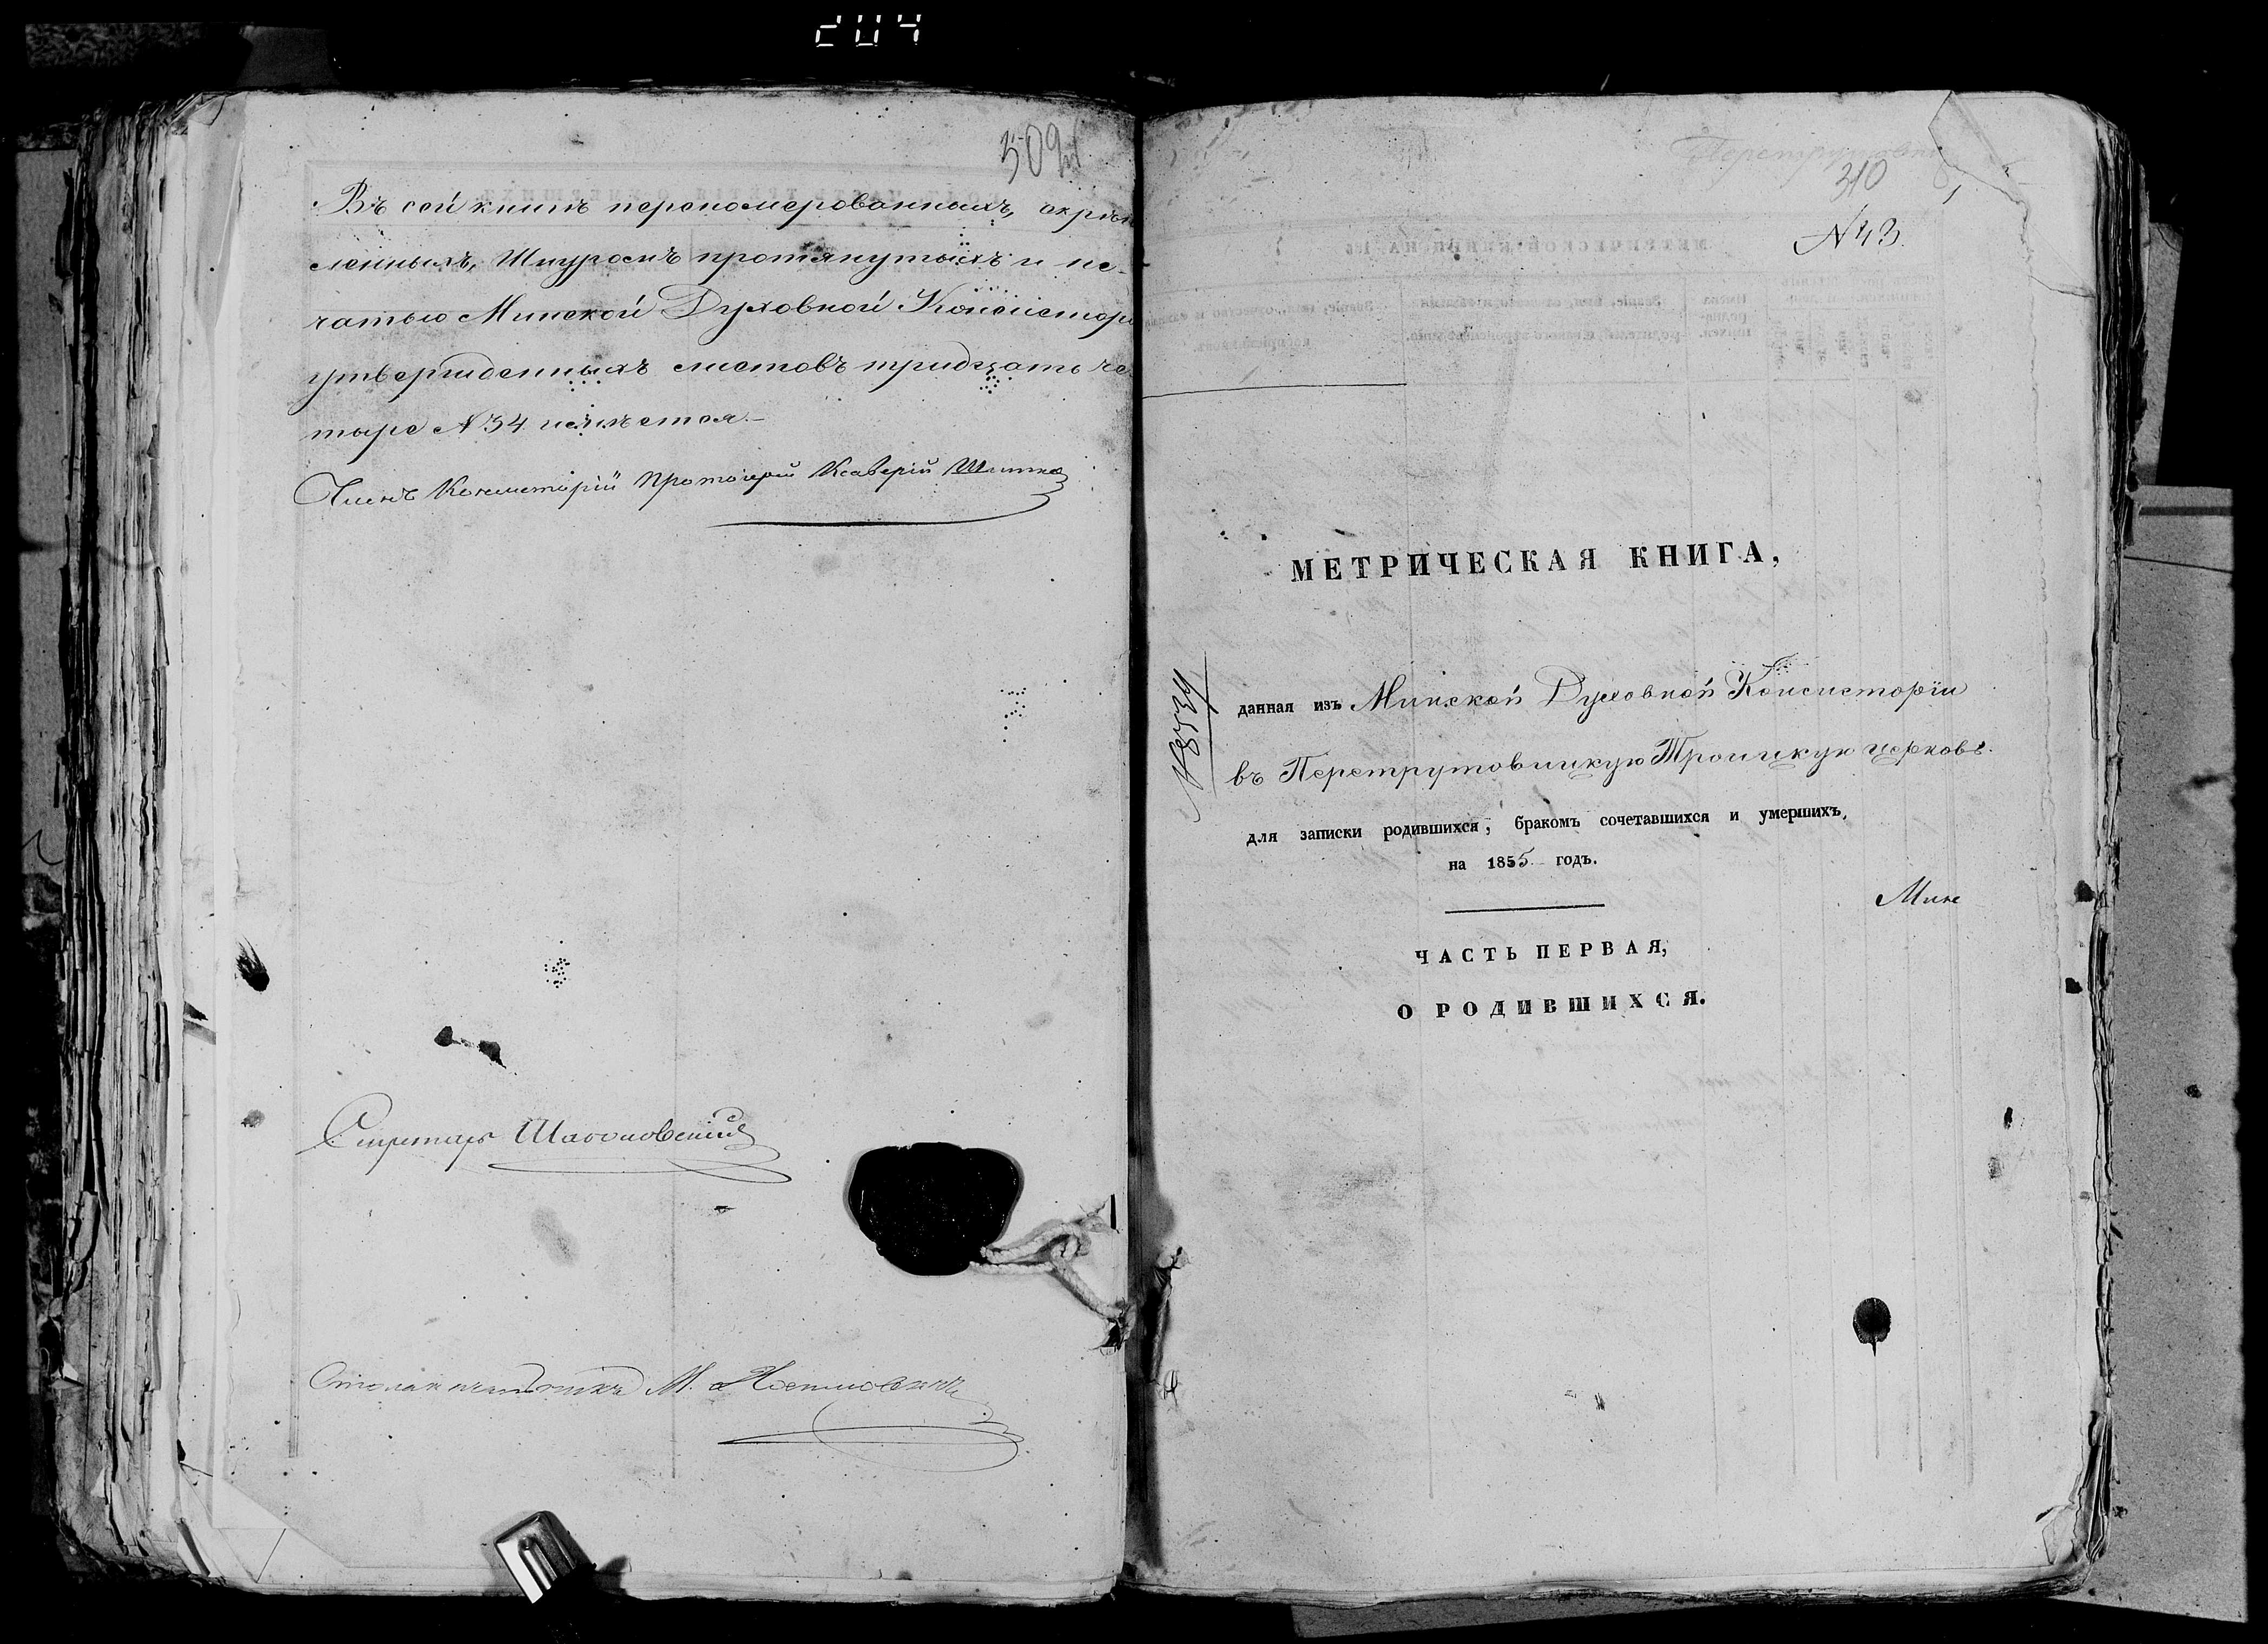 204
309
Въ сей книгѣ перономерованныхъ, скрѣп
ленныхъ, Шнуромъ протянутыхъ и пе-
чатью Минской Духовной Консистор
утвержденныхъ листовъ тридцать че
тыре № 34 имѣется.-
Членъ Консисторіи Протоіерей Ксаверій
Секретарь
Столоначальникъ М.
310
№ 43.
МЕТРИЧЕСКАЯ КНИГА,
данная изъ Минской Духовной Консисторіи
въ Перетрутовицкую Троицкую церковь.
для записки родившихся, бракомъ сочетавшихся и умершихъ,
на 1855 годъ.
Мин
ЧАСТЬ ПЕРВАЯ,
О РОДИВШИХСЯ.